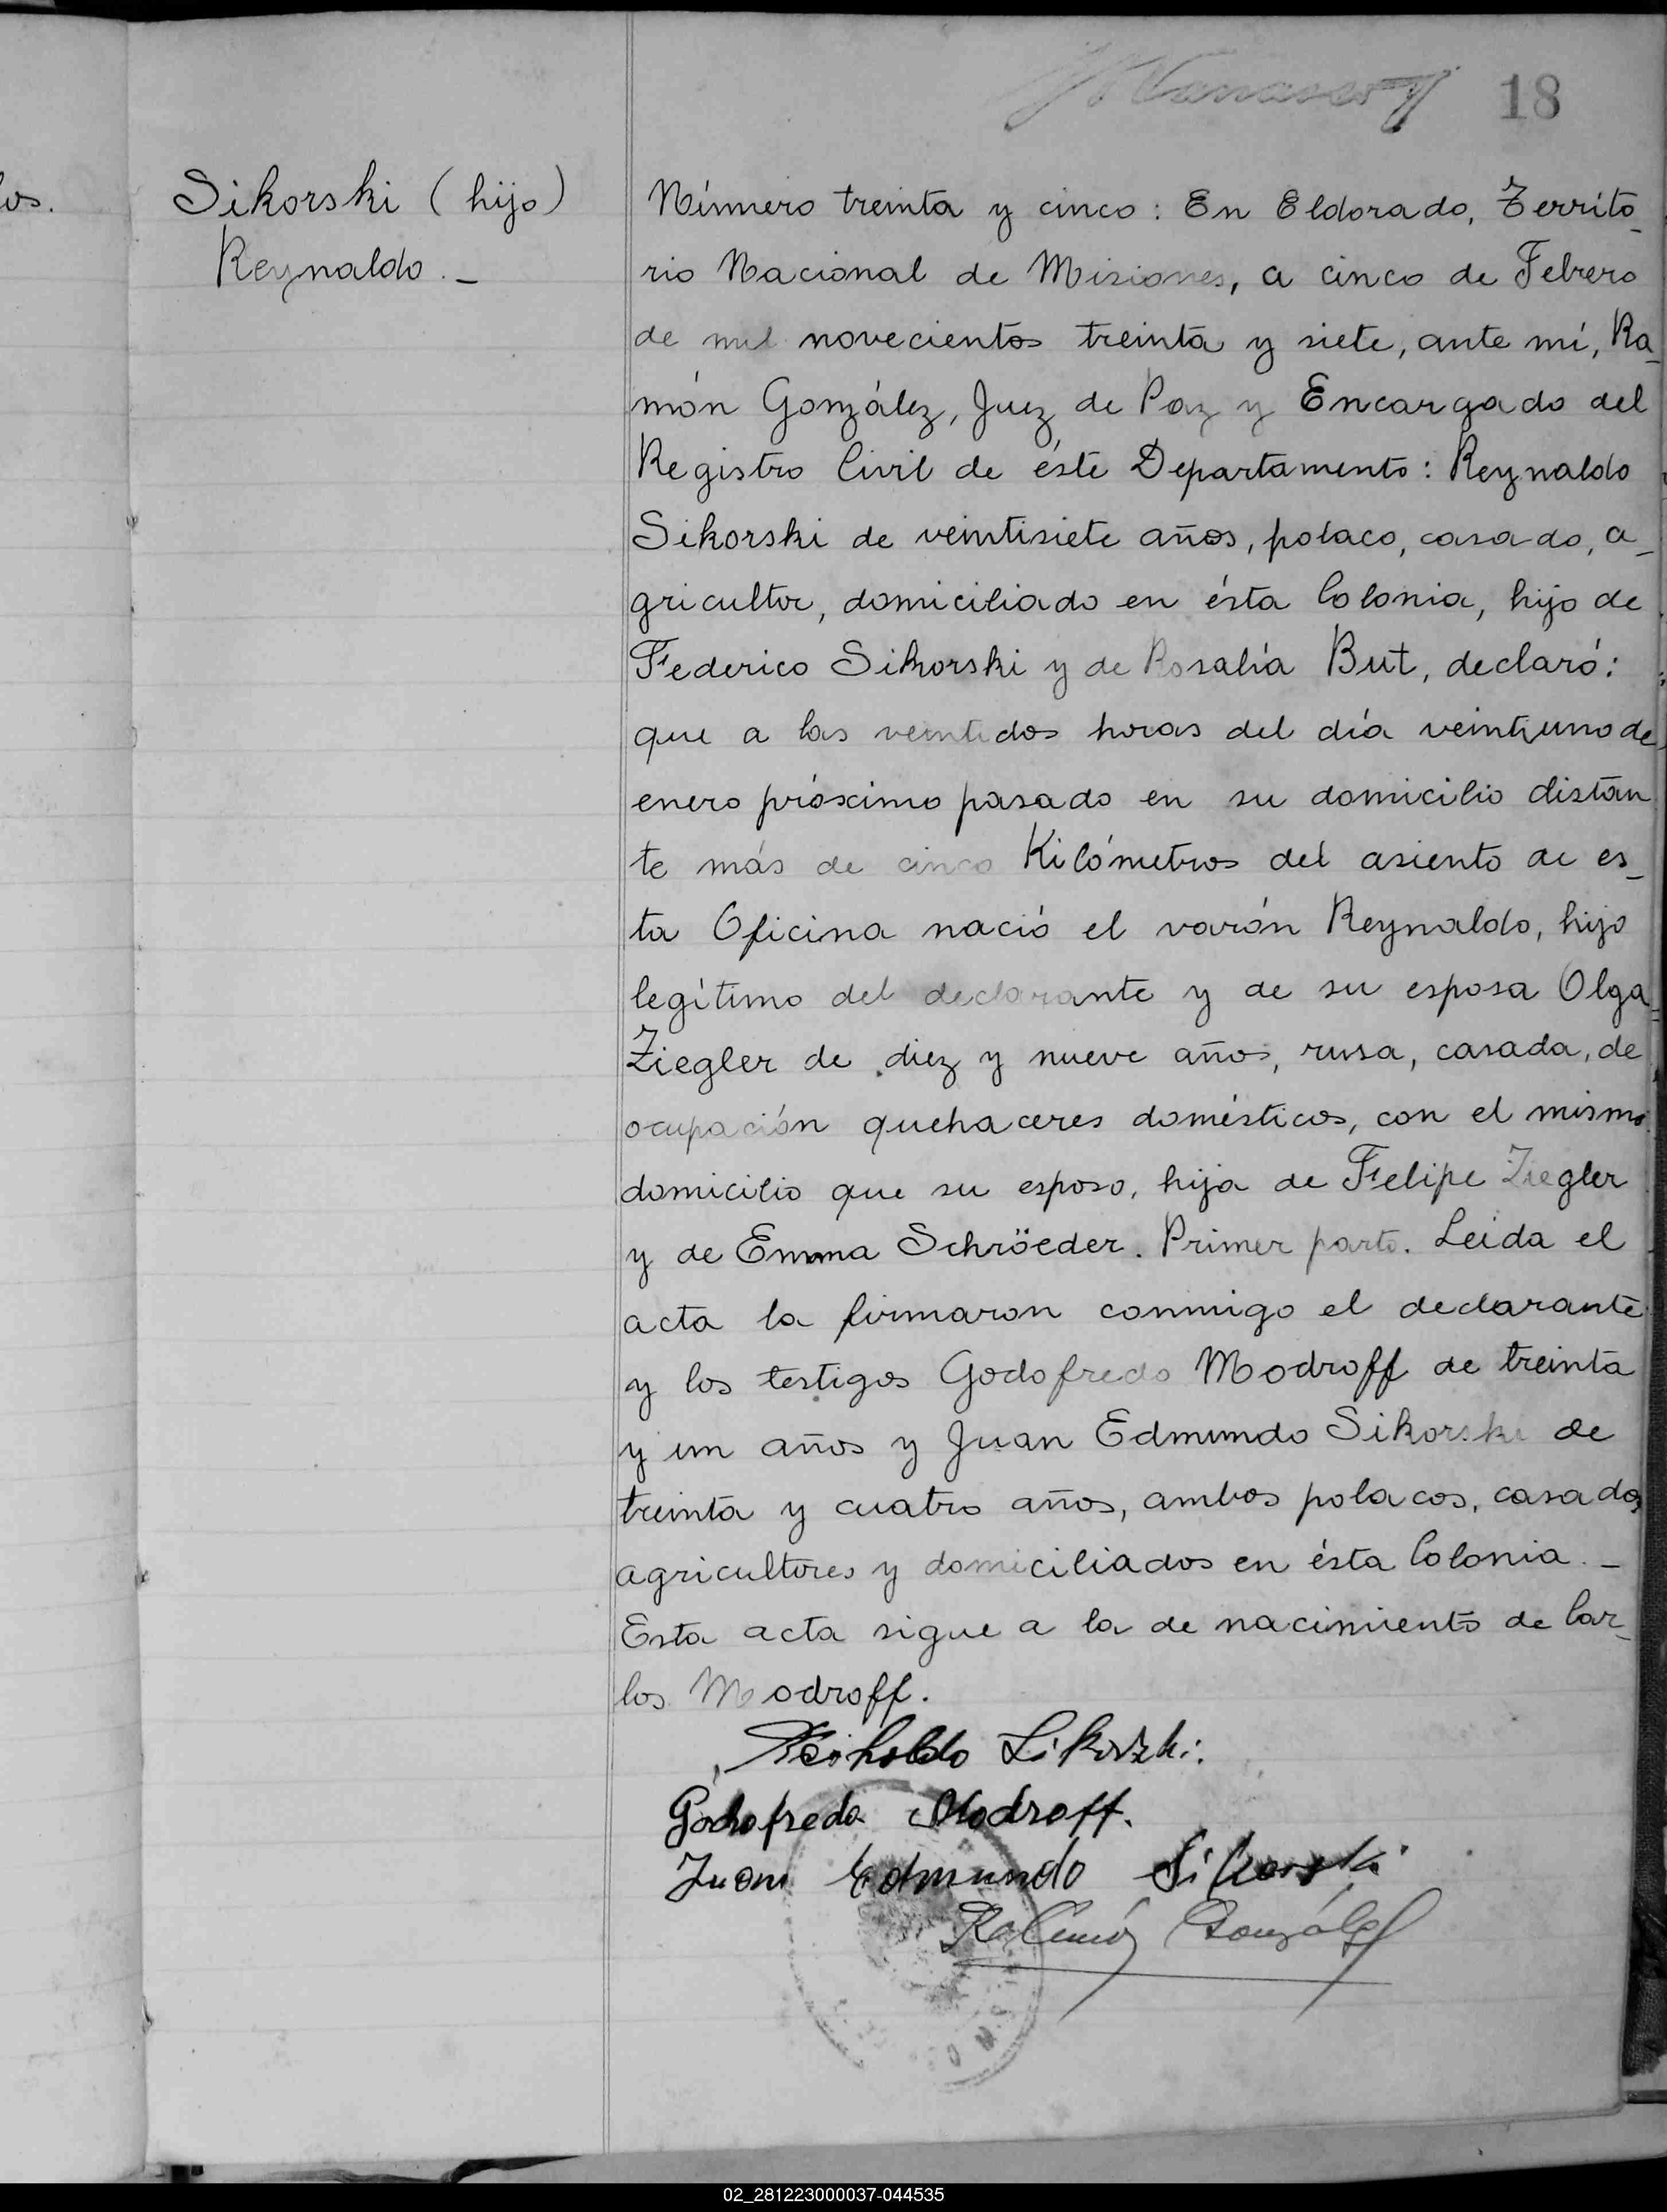 18
os.
Sikorski (hijo)
Reynaldo._
Número treinta y cinco: En Eldorado, Territo_
rio Nacional de Misiones, a cinco de Febrero
de mil novecientos treinta y siete, ante mí, Ra_
món González, Juez de Paz y Encargado del
Registro Civil de éste Departamento: Reynaldo
Sikorski de veintisiete años, polaco, casado, a_
gricultor, domiciliado en ésta Colonia, hijo de
Federico Sikorski y de Rosalía But, declaró:
que a las veintidos horas del día veintiuno de
enero próximo pasado en su domicilio distan
te más de cinco Kilómetros del asiento de es_
ta Oficina nació el varón Reynaldo, hijo
legítimo del declarante y de su esposa Olga
Ziegler de diez y nueve años, rusa, casada, de
ocupación quehaceres domésticos, con el mismo
domicilio que su esposo, hija de Felipe Ziegler
y de Emma Schröeder. Primer parto. Leída el
acta la firmaron conmigo el declarante
y los testigos Godofredo Modroff de treinta
y un años y Juan Edmundo Sikorski de
treinta y cuatro años, ambos polacos, casados
agricultores y domiciliados en ésta Colonia._
Esta acta sigue a la de nacimiento de Car_
los Modroff.
Reinholdo Sikorzki.
Godofredo Modroff.
Juan Edmundo Sikorski
Ramón González
02_281223000037-044535